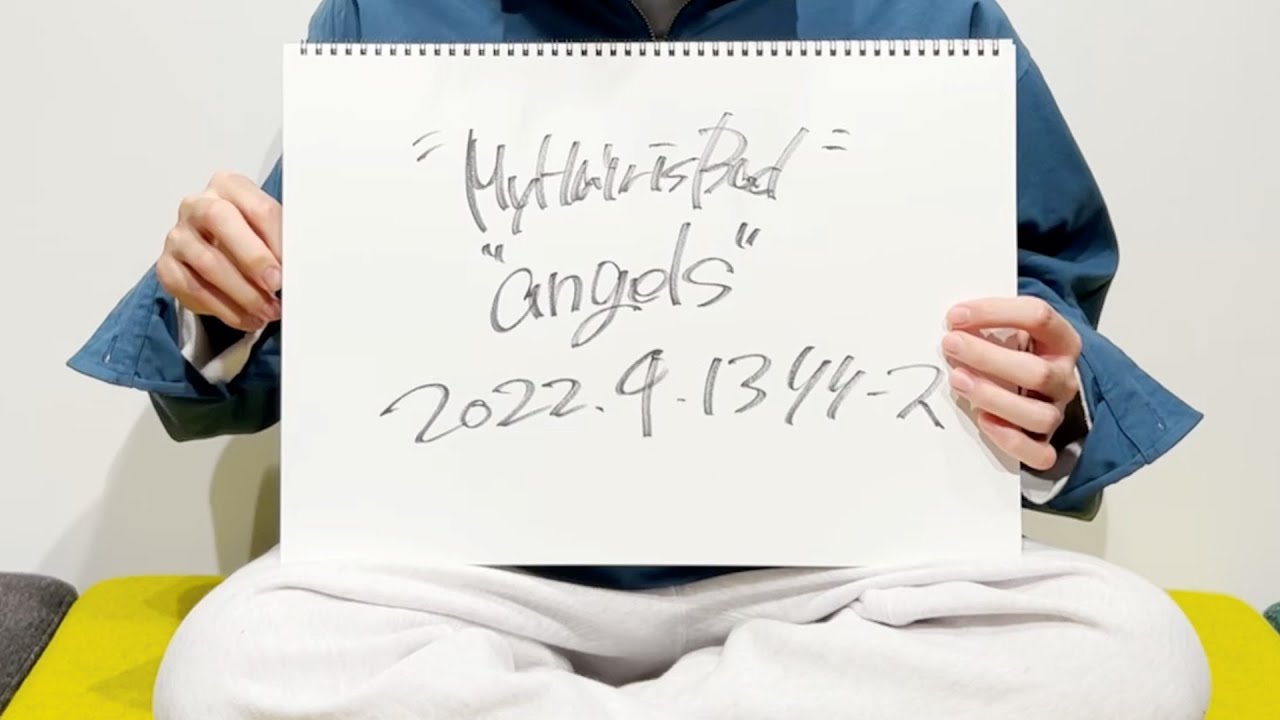 "My Hair is Bad"
"angels"
2022.4.13 リリース